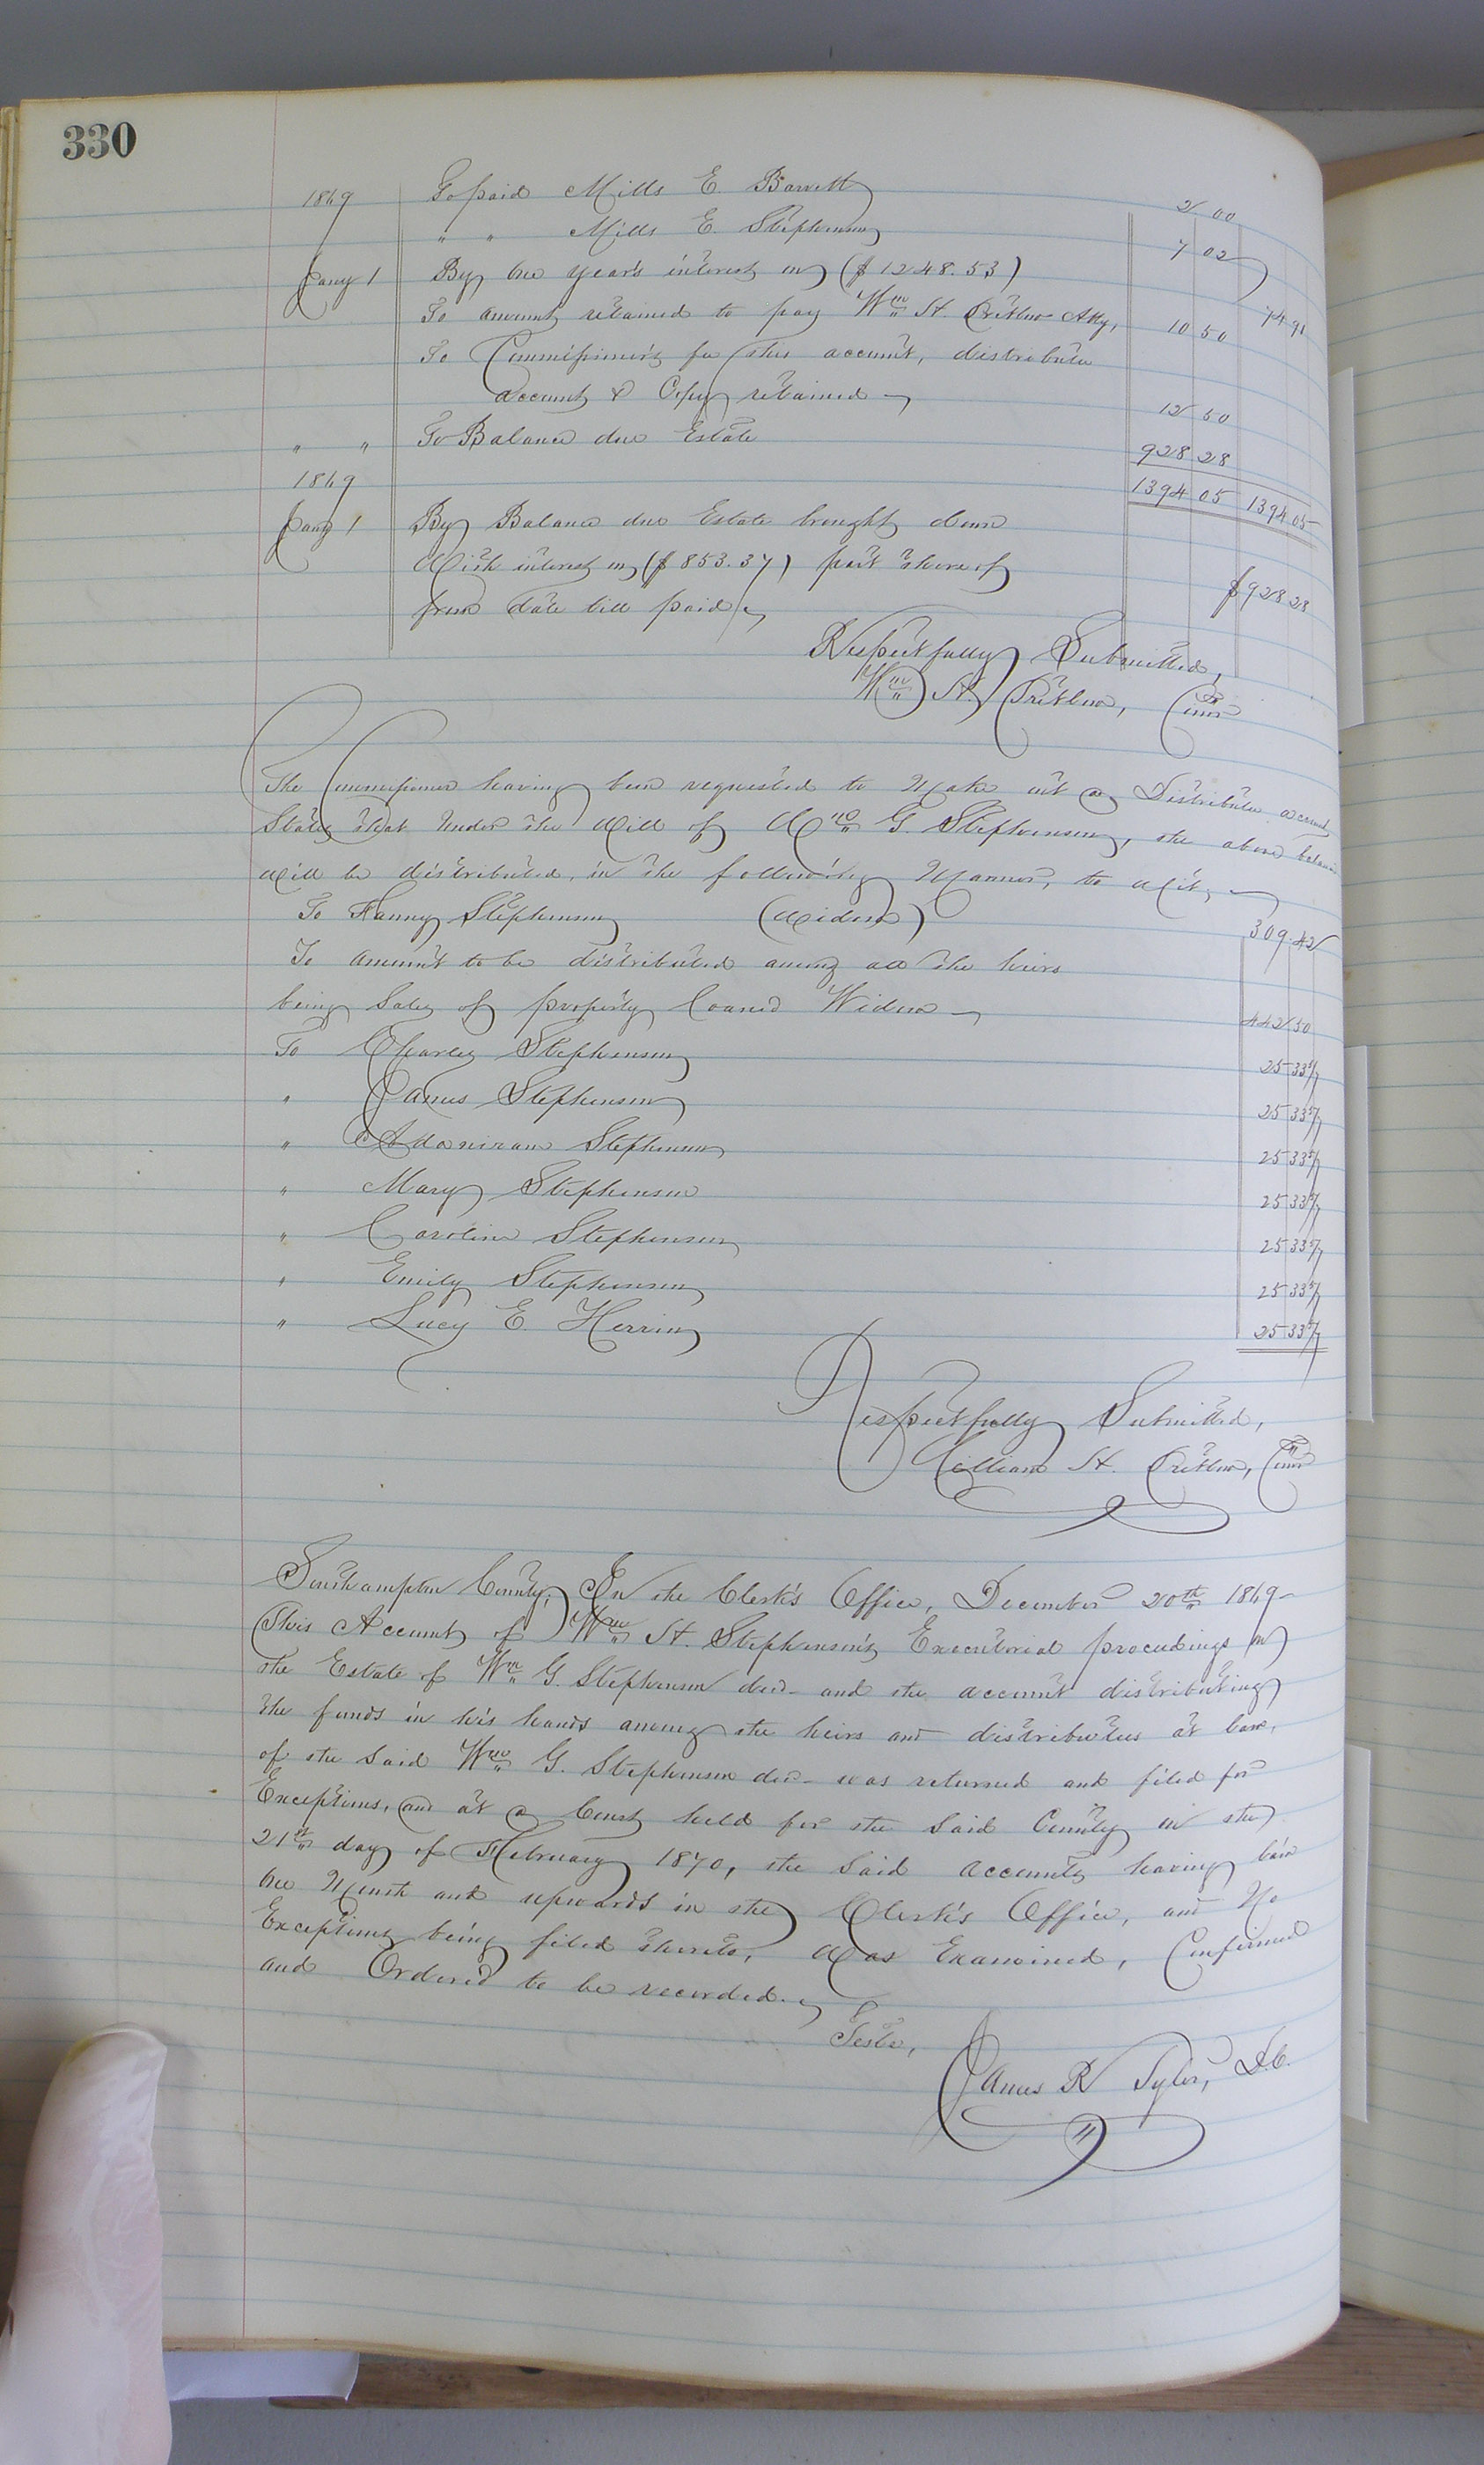 330
1869 To paid Mills E. Barrett 2 00
" " Mills E. Stephenson 7 02
Jany 1 By one year's interest on ($1248.53) 74 91
To amount retained to pay Wm H. Pretlow Atty, 10 50
To Commissioner's fee this account, distributive
account & Copy retained 12 50
" " To Balance due Estate 928 28
1869 1394 05 1394 05
Jany 1 By Balance due Estate brought down $928 28
With interest on ($853.37) part thereof
from date till paid
Respectfully Submitted,
Wm H. Pretlow, Comr
The Commissioner having been requested to make out a Distributive account
States that under the Will of Wm G. Stephenson, the above balance
will be distributed, in the following manner, to wit,
To Fanny Stephenson (Widow) 309 42
To amount to be distributed among all the heirs
being Sales of property loaned Widow 442 50
To Charles Stephenson 25 33 5/7
" James Stephenson 25 33 5/7
" Adoniram Stephenson 25 33 5/7
" Mary Stephenson 25 33 5/7
" Caroline Stephenson 25 33 5/7
" Emily Stephenson 25 33 5/7
" Lucy E. Herring 25 33 5/7
Respectfully Submitted,
William H. Pretlow, Comr
Southampton County, In the Clerk's Office, December 20th 1869
This Account of Wm H. Stephenson's Executorial proceedings on
the Estate of Wm G. Stephenson decd and the account distributing
the funds in his hands among the heirs and distributees at law,
of the said Wm G. Stephenson decd was returned and filed for
Exceptions, and at a Court held for the said County on the
21st day of February 1870, the said accounts having lain
one Month and upwards in the Clerk's Office, and No
Exceptions being filed thereto, Was Examined, Confirmed
and Ordered to be recorded.
Teste,
James R Tyler, D.C.